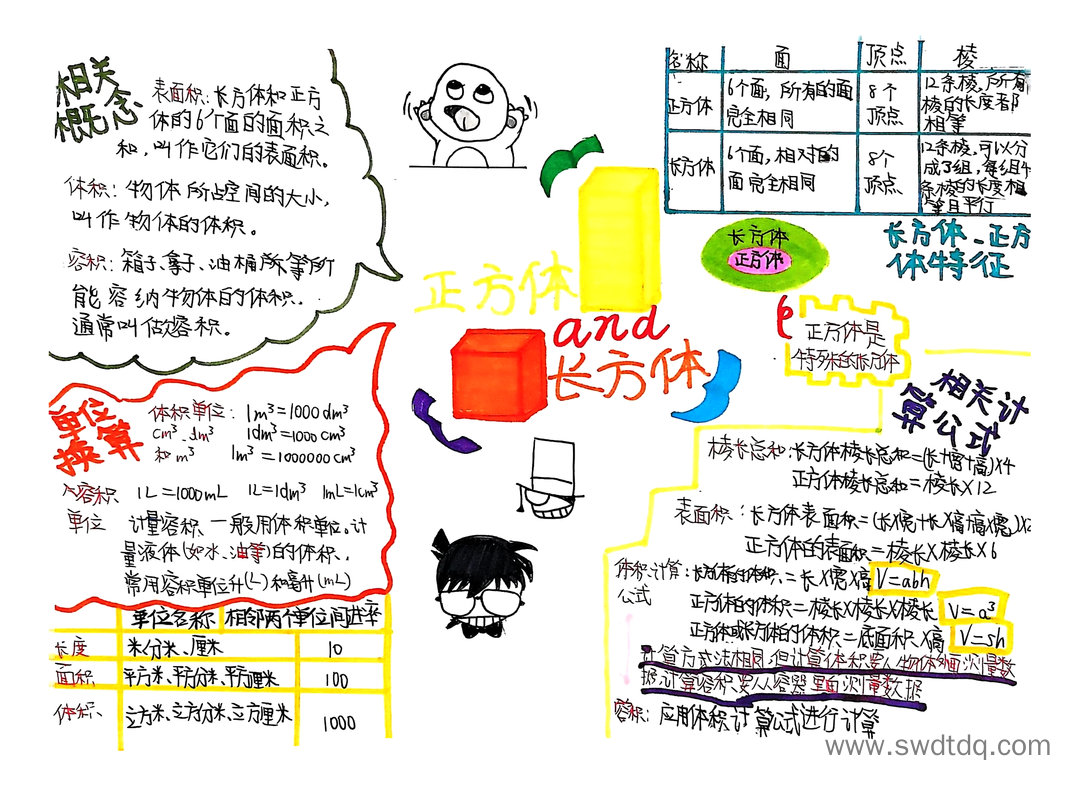 相关
概念
表面积:长方体和正方
体的6个面的面积之
和,叫作它们的表面积。
体积:物体所占空间的大小,
叫作物体的体积。
容积:箱子、
油桶所
等所
能容纳物体的体积.
通常叫做容积。
名称 面 顶点 棱
正方体 6个面,所有的面完全相同 8个顶点 12条棱,所有棱的长度都相等
长方体 6个面,相对的面完全相同 8个顶点 12条棱,可以分成了组,每组4条棱的长度相等且平行
长方体
正方体
长方体、正方
体特征
正方体
and
长方体
正方体是
特殊的长方体
单位
换算
体积单位: 1m³=1000dm³
cm³、dm³ 1dm³=1000cm³
和m³ 1m³=1000000cm³
容积 1L=1000mL 1L=1dm³ 1mL=1cm³
单位 计量容积,一般用体积单位。计
量液体(如水、油等)的体积、
常用容积单位升(L)和毫升(mL)
单位名称 相邻两个单位间进率
长度 米、分米、厘米 10
面积 平方米、平方分米、平方厘米 100
体积 立方米、立方分米、立方厘米 1000
相关计
算公式
棱长总和:长方体棱长总和=(长+宽+高)×4
正方体棱长总和=棱长×12
表面积:长方体表面积=(长×宽+长×高+高×宽)×2
正方体的表面积=棱长×棱长×6
体积计算:长方体的体积=长×宽×高 V=abh
公式 正方体的体积=棱长×棱长×棱长 V=a³
正方体或长方体的体积=底面积×高 V=sh
计算方式法相同,但计算体积要从物体外面测量数
据,计算容积要从容器里面测量数据
容积:应用体积计算公式进行计算
www.swdtdq.com